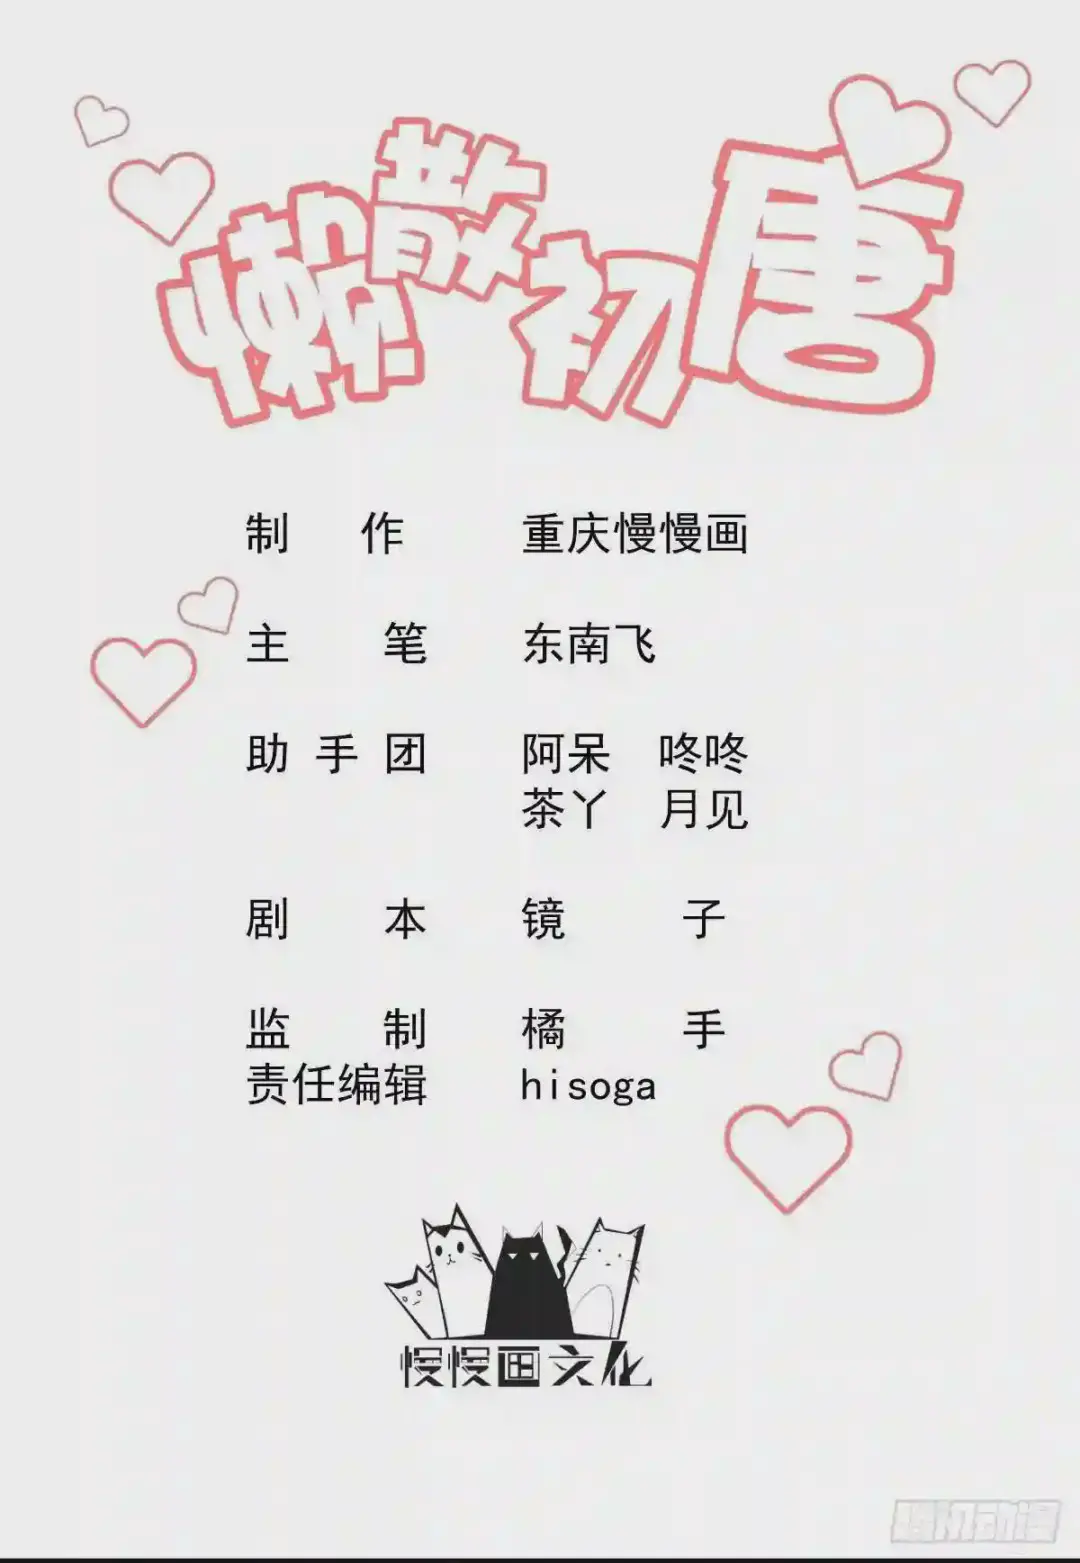 懒散初唐
制 作 重庆慢慢画
主 笔 东南飞
助 手 团 阿呆 咚咚
茶丫 月见
剧 本 镜 子
监 制 橘 手
责任编辑 hisoga
慢慢画文化